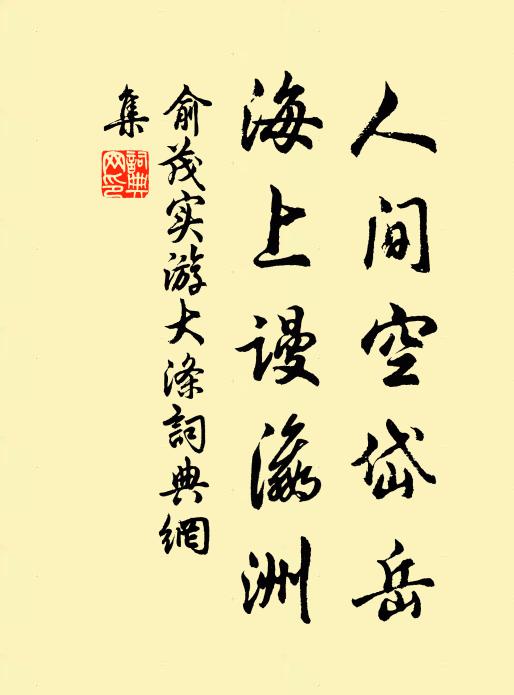 人间空岱岳
海上谩瀛洲
俞茂实游大涤詞典網
集
詞典
网印